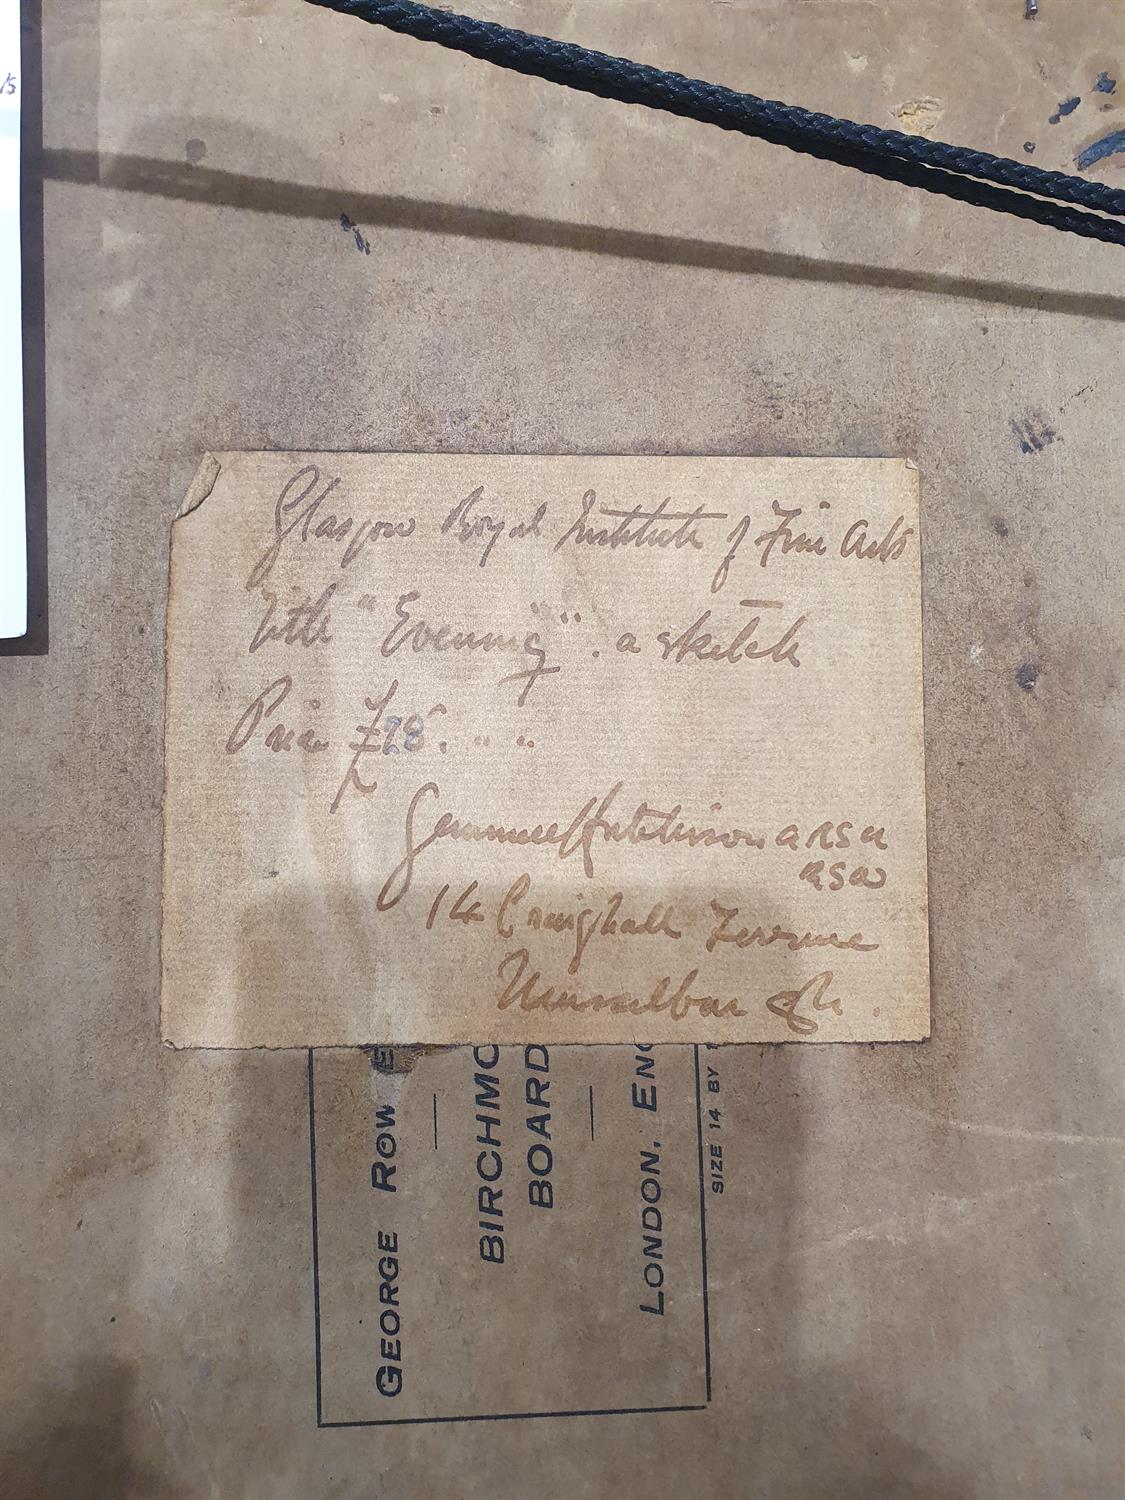 Glasgow Royal Institute of Fine Arts
Title "Evening". a sketch
Price £28. " "
Gemmell Hutchison ARSA
RSW
14 Craighall Terrace
Musselburgh.
GEORGE ROW
BIRCHMO
BOARD
LONDON, ENG
SIZE 14 BY